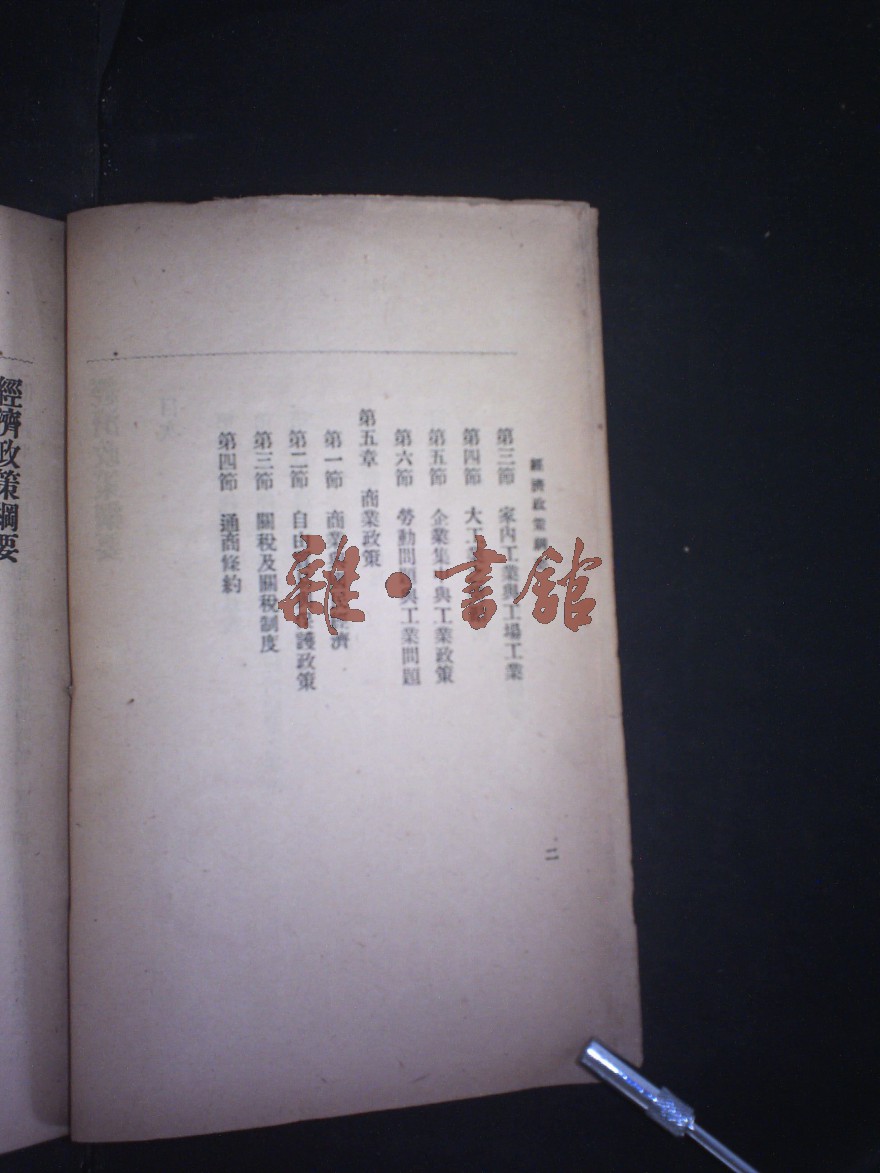 經濟政策綱
第三節 家內工業與工場工業
第四節 大工
第五節 企業集中與工業政策
第六節 勞動問題與工業問題
第五章 商業政策
第一節 商業與國民經濟
第二節 自由 護政策
第三節 關稅及關稅制度
第四節 通商條約
二
經濟政策綱要
雜·書館